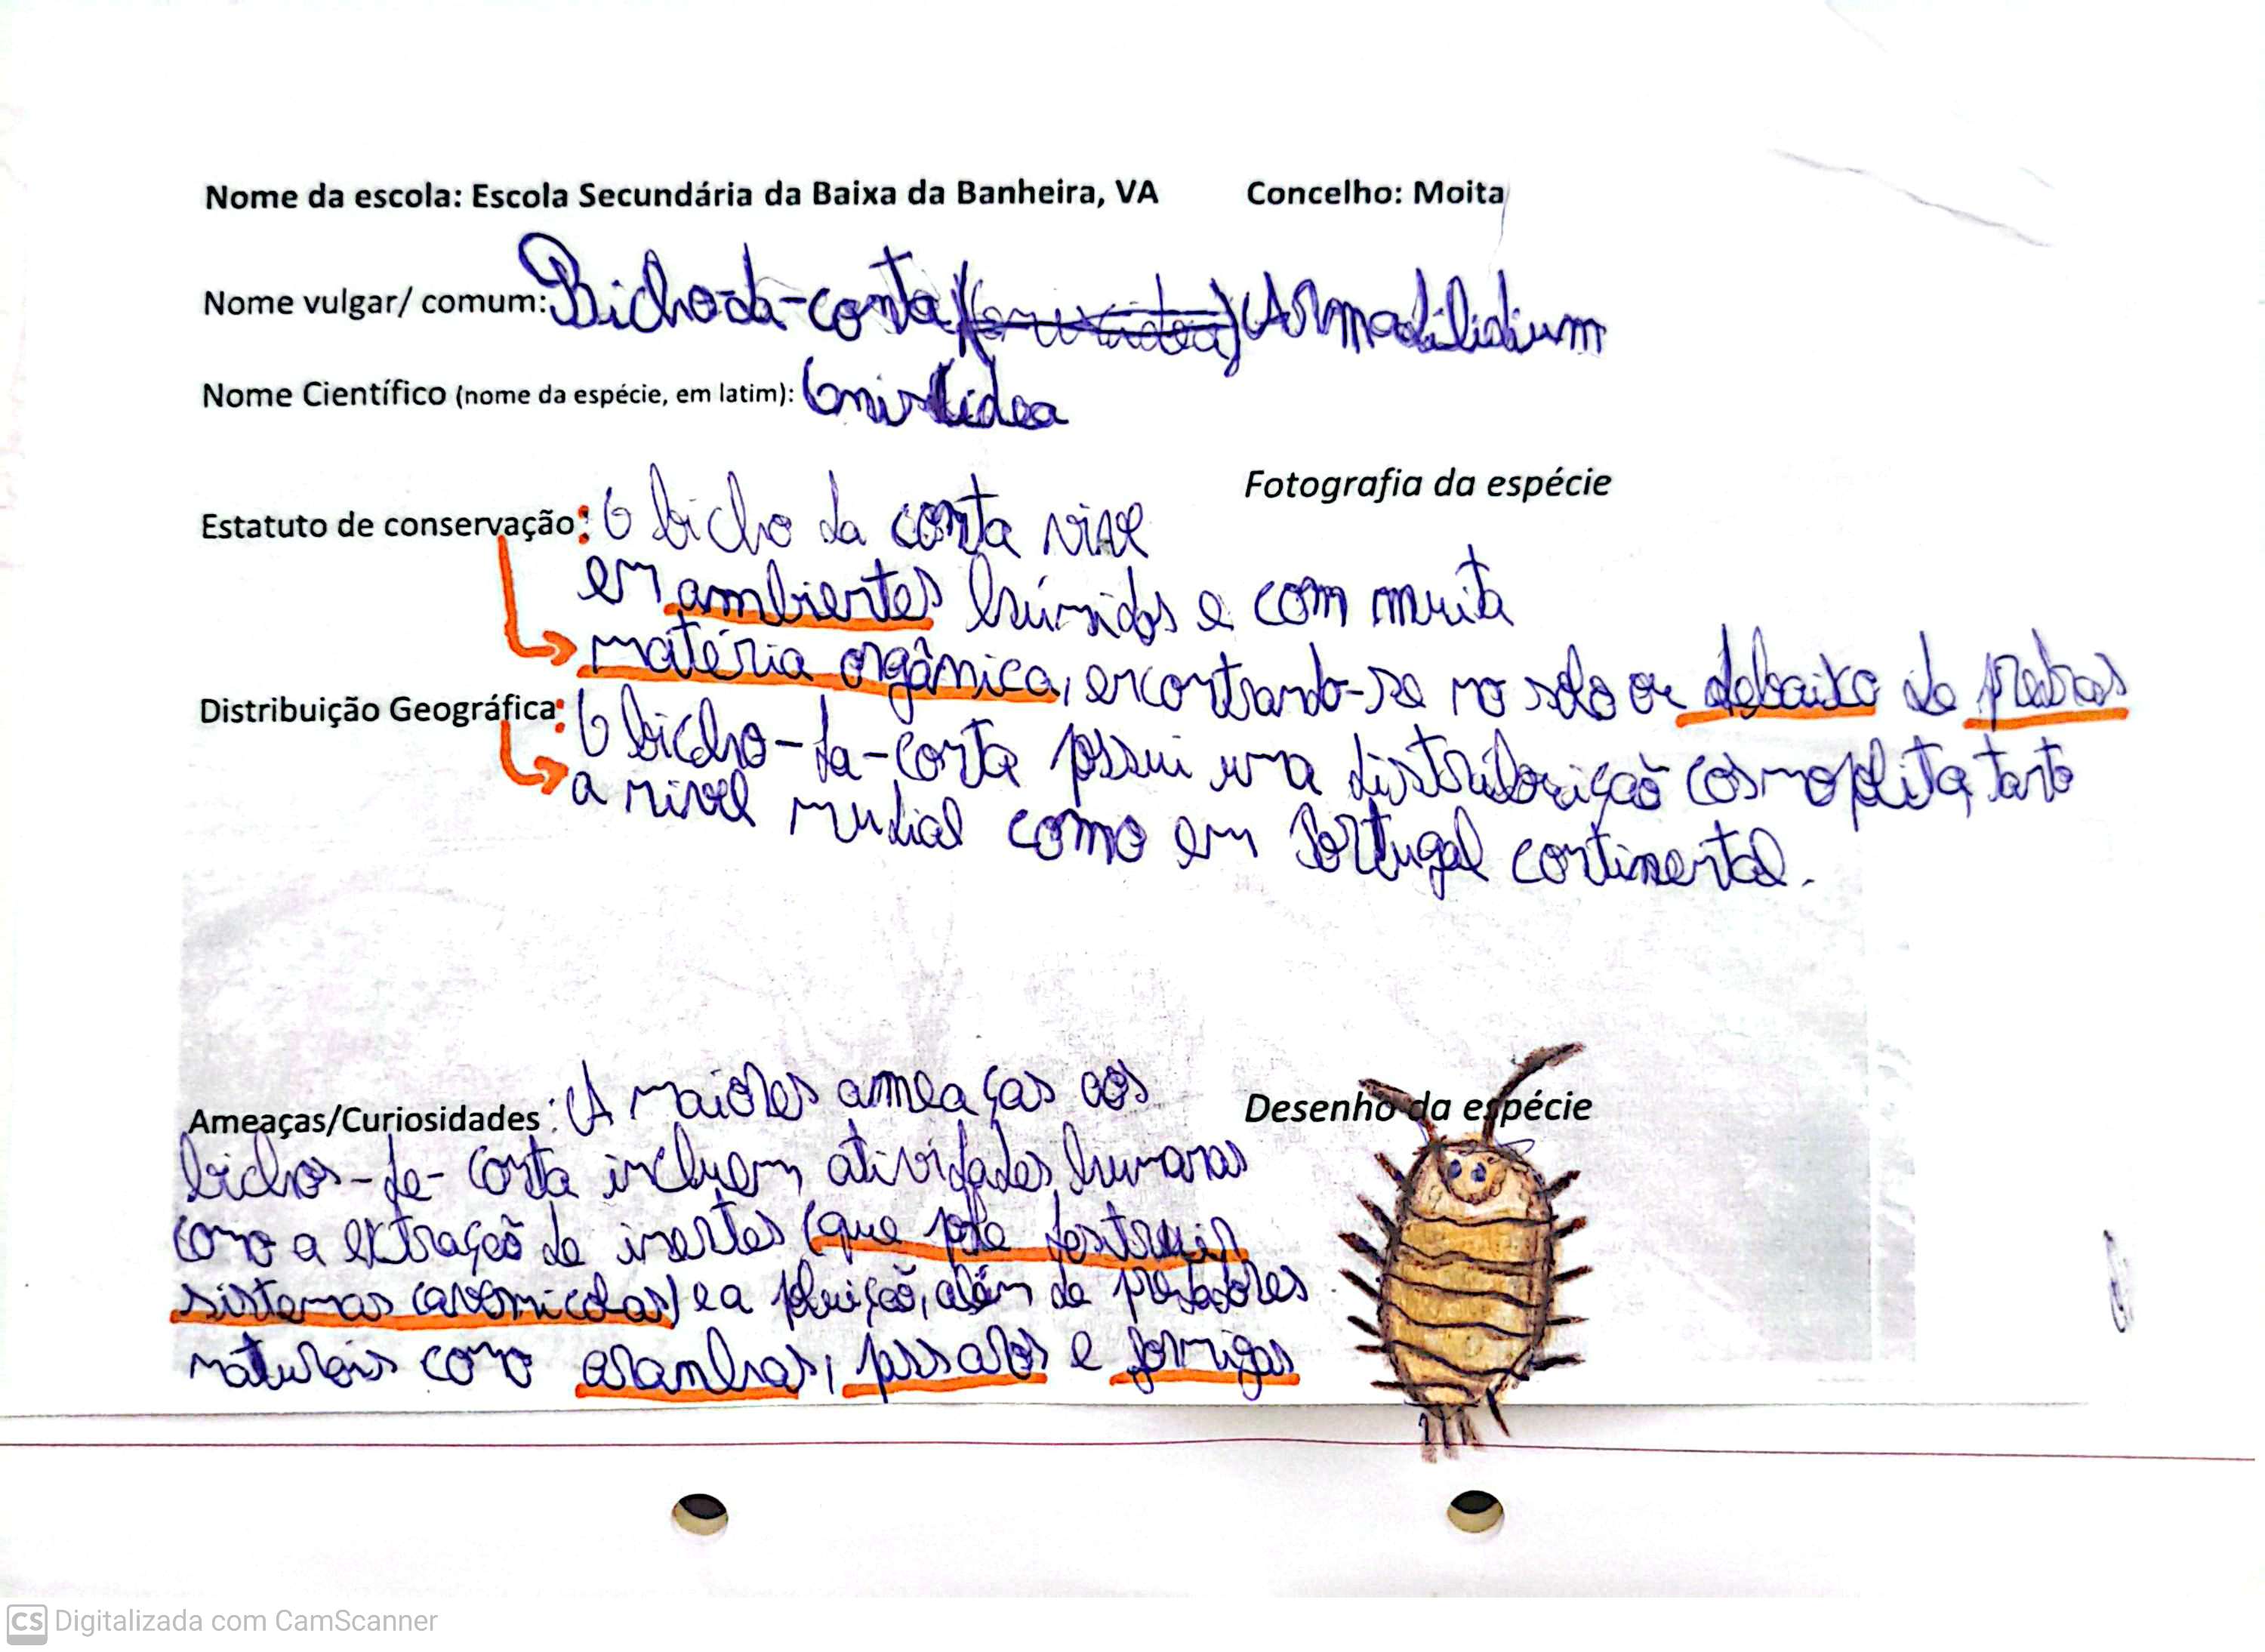 Nome da escola: Escola Secundária da Baixa da Banheira, VA Concelho: Moita
Nome vulgar/ comum: Bicho-da-conta Armadilidium
Nome Científico (nome da espécie, em latim): Oniscidea
Fotografia da espécie
Estatuto de conservação: O bicho da conta vive
em ambientes húmidos e com muita
matéria orgânica, encontrando-se no solo ou debaixo de pedras
Distribuição Geográfica: O bicho-da-conta possui uma distribuição cosmoplita, tanto
a nivel mundial como em Portugal continental.
Ameaças/Curiosidades: A maiores ameaças aos
bichos-de-conta incluem atividades humanas
como a extração de inertes (que pode destruir
sistemas cavernicolas) e a poluição, além de predadores
naturais como aranhas, pssaros e formigas
Desenho da espécie
CS Digitalizada com CamScanner